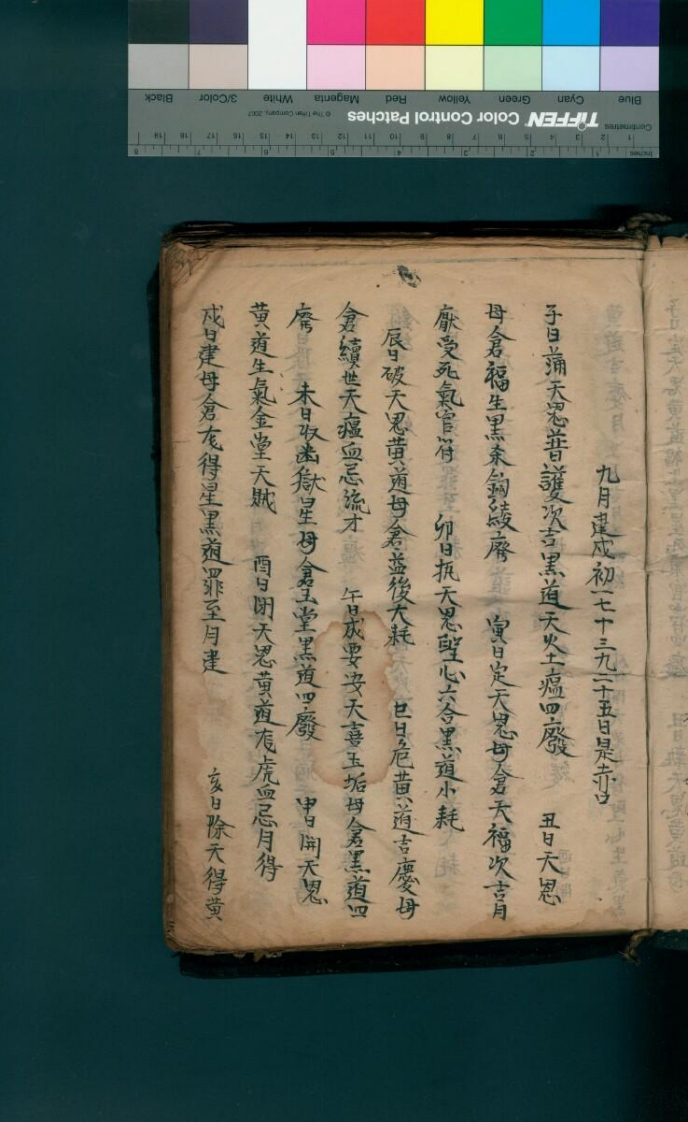 九月建戌初一七十三九二十五日是赤口
子日滿天恩普護次吉黑道天火土瘟四廢 丑日天恩
母倉福生黑 鈎綾廢 寅日定天恩母倉天福次吉月
厭受死氣官符 卯日执天恩聖心六合黑道小耗
辰日破天恩黄道母倉益後大耗 巳日危黄道吉慶母
倉續世天瘟血忌流才 午日成要安天喜玉 母倉黑道四
廢 未日收 獄星母倉玉堂黑道四廢 申日開天恩
黄道生氣金堂天賊 酉日閉天恩黄道 虎血忌月得
戌日建母倉 得星黑道罪至月建 亥日除天得黄
TIFFEN Color Control Patches
© The Tiffen Company, 2007
Blue Cyan Green Yellow Red Magenta White 3/Color Black
Centimetres
Inches